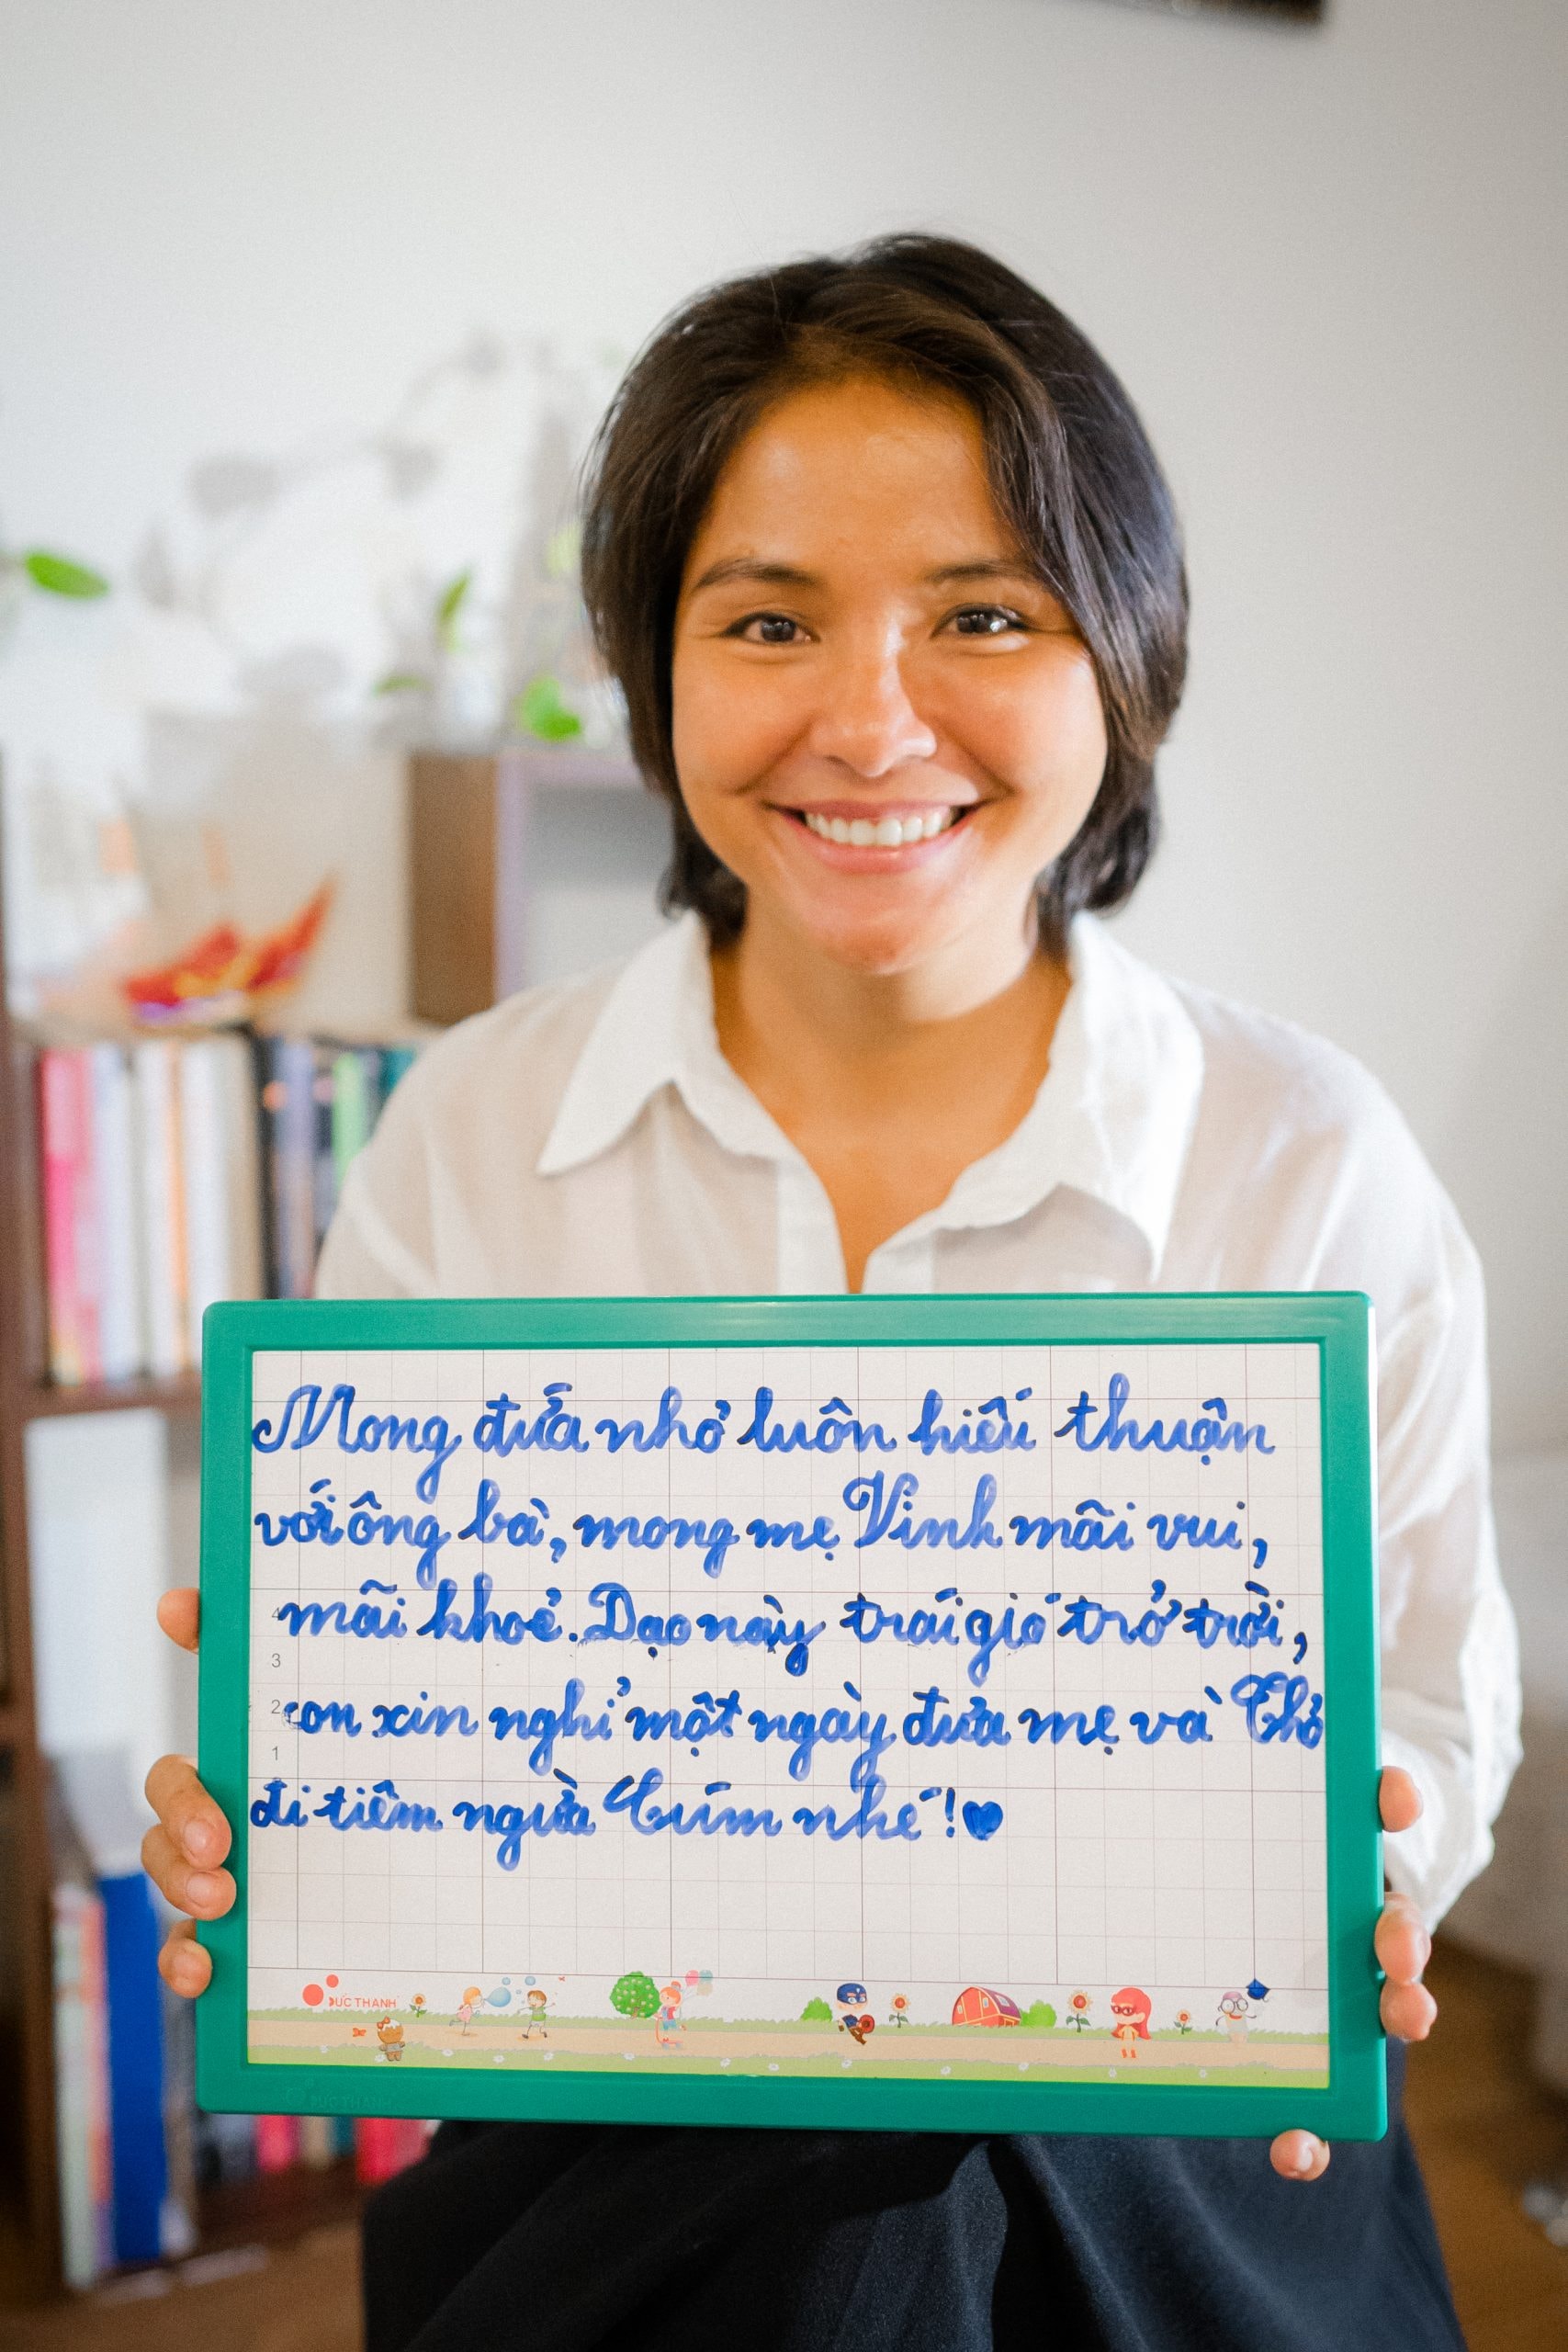 Mong đứa nhỏ luôn hiếu thuận
với ông bà, mong mẹ Vinh mãi vui,
mãi khoẻ. Dạo này trái gió trở trời,
con xin nghỉ một ngày đưa mẹ và Thỏ
đi tiêm ngừa Cúm nhé!♥
4
3
2
1
ĐUC THANH